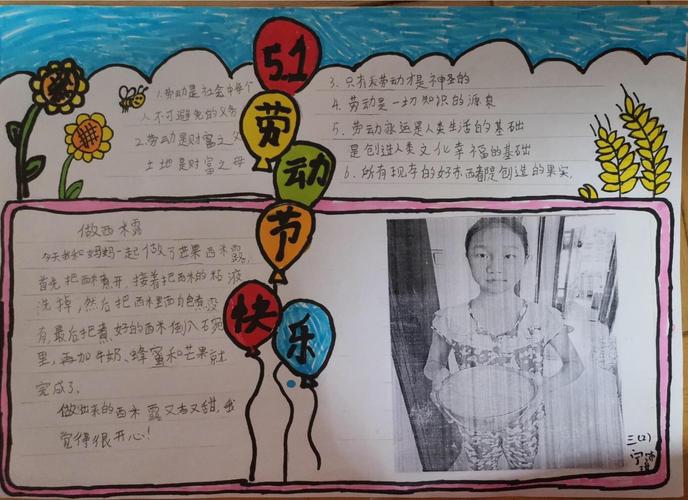 5.1
劳
动
节
快
乐
1.劳动是社会中每个
人不可避免的义务
2.劳动是财富之父
土地是财富之母
3.只有劳动才是神圣的
4.劳动是一切知识的源泉
5.劳动永远是人类生活的基础
是创造人类文化幸福的基础
6.所有现存的好东西都是创造的果实.
做西米露
今天我和妈妈一起做了芒果西米露,
首先把西米煮开,接着把西米的粘液
洗掉,然后把西米里面白色煮没
有,最后把煮好的西米倒入碗
里,再加牛奶、蜂蜜和芒果就
完成了。
做出来的西米露又香又甜,我
觉得很开心!
三(2)
宁